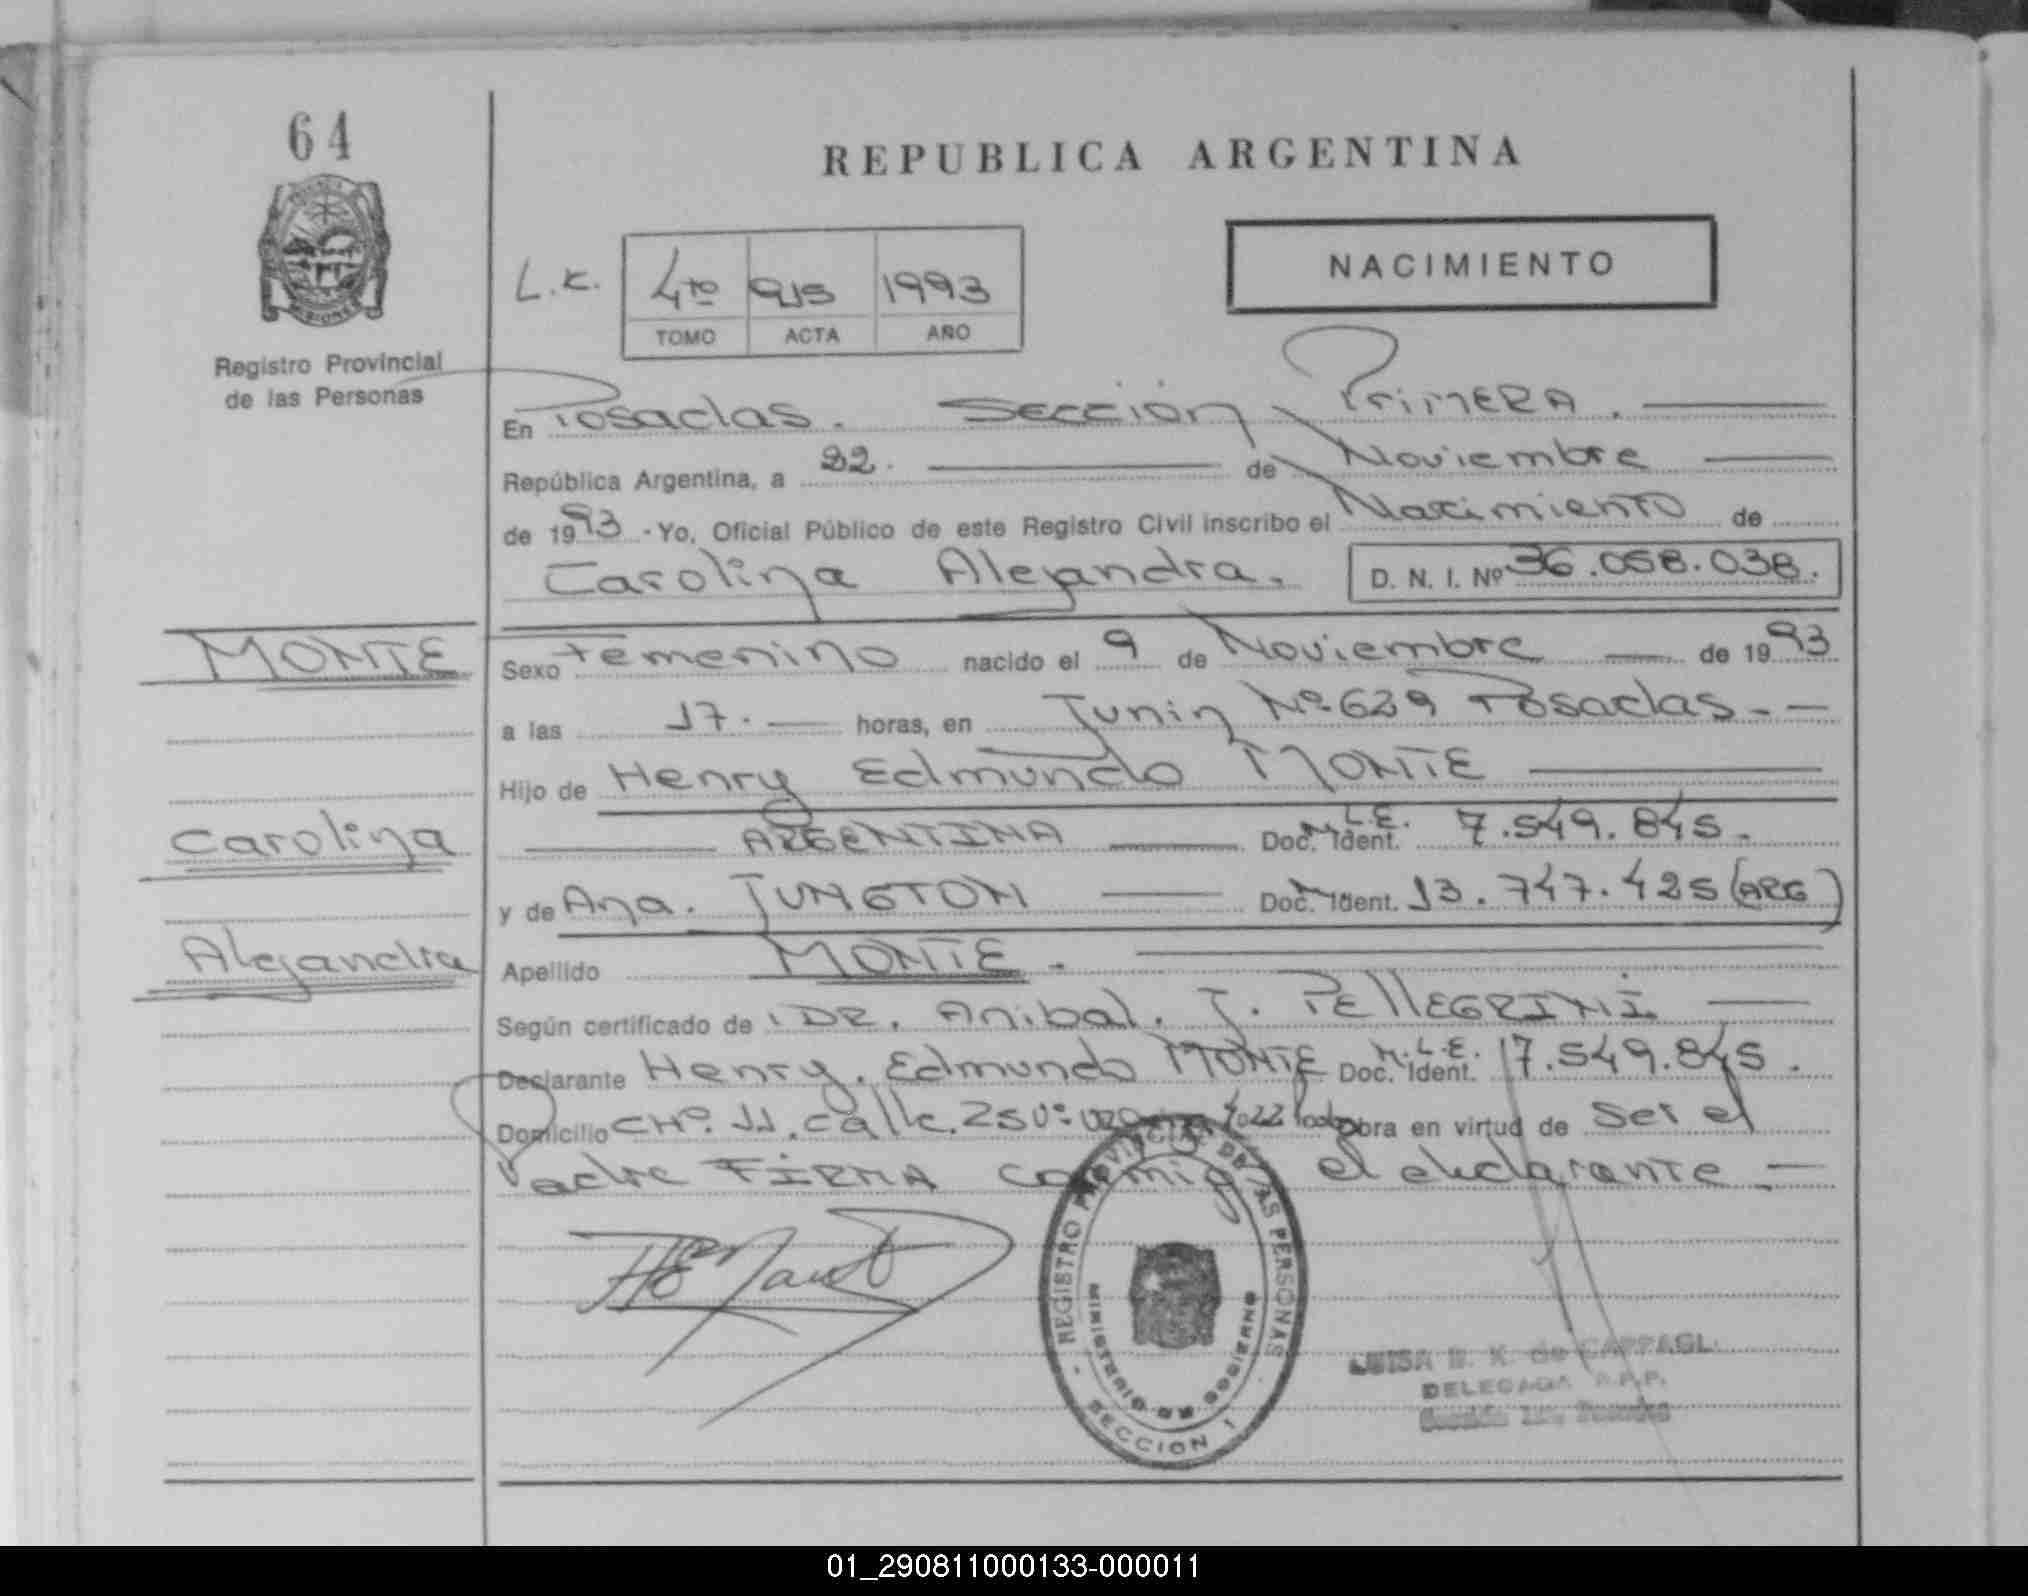 64
REPUBLICA ARGENTINA
MISIONES
Registro Provincial
de las Personas
NACIMIENTO
L.K.
4to 915 1993
TOMO ACTA AÑO
En Posadas. Sección Primera.
República Argentina, a 22. de Noviembre
de 1993 - Yo, Oficial Público de este Registro Civil inscribo el Nacimiento de
Carolina Alejandra. D. N. I. Nº 36.058.038.
MONTE
Sexo Femenino nacido el 9 de Noviembre de 1993
a las 17. horas, en Junin Nº 629 Posadas.
Hijo de Henry Edmundo MONTE
Carolina
ARGENTINA Doc. Ident. M.L.E. 7.549.845.
y de Ana. JUNGTON Doc. Ident. 13.747.425 (ARG)
Alejandra
Apellido MONTE.
Según certificado de DR. Anibal. J. PELLEGRINI
Declarante Henry. Edmundo MONTE Doc. Ident. M.L.E. 7.549.845.
Domicilio CHº. 11. calle. obra en virtud de Ser el
Padre FIRMA conmigo el declarante.
REGISTRO PROVINCIAL DE LAS PERSONAS
MINISTERIO DE GOBIERNO
SECCION 1
LUISA E. K. de
DELEGADA R.P.P.
Sección 1ra. Posadas
01_290811000133-000011